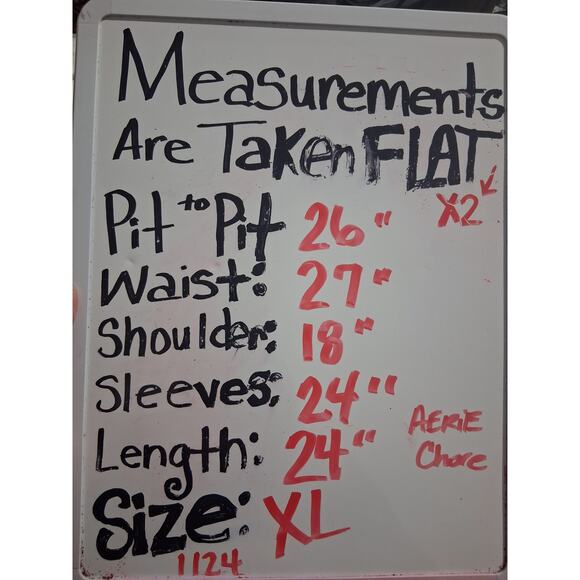 Measurements
Are Taken FLAT
X2
Pit to Pit 26"
Waist: 27"
Shoulder: 18"
Sleeves: 24"
Length: 24"
AERIE
Chore
Size: XL
1124